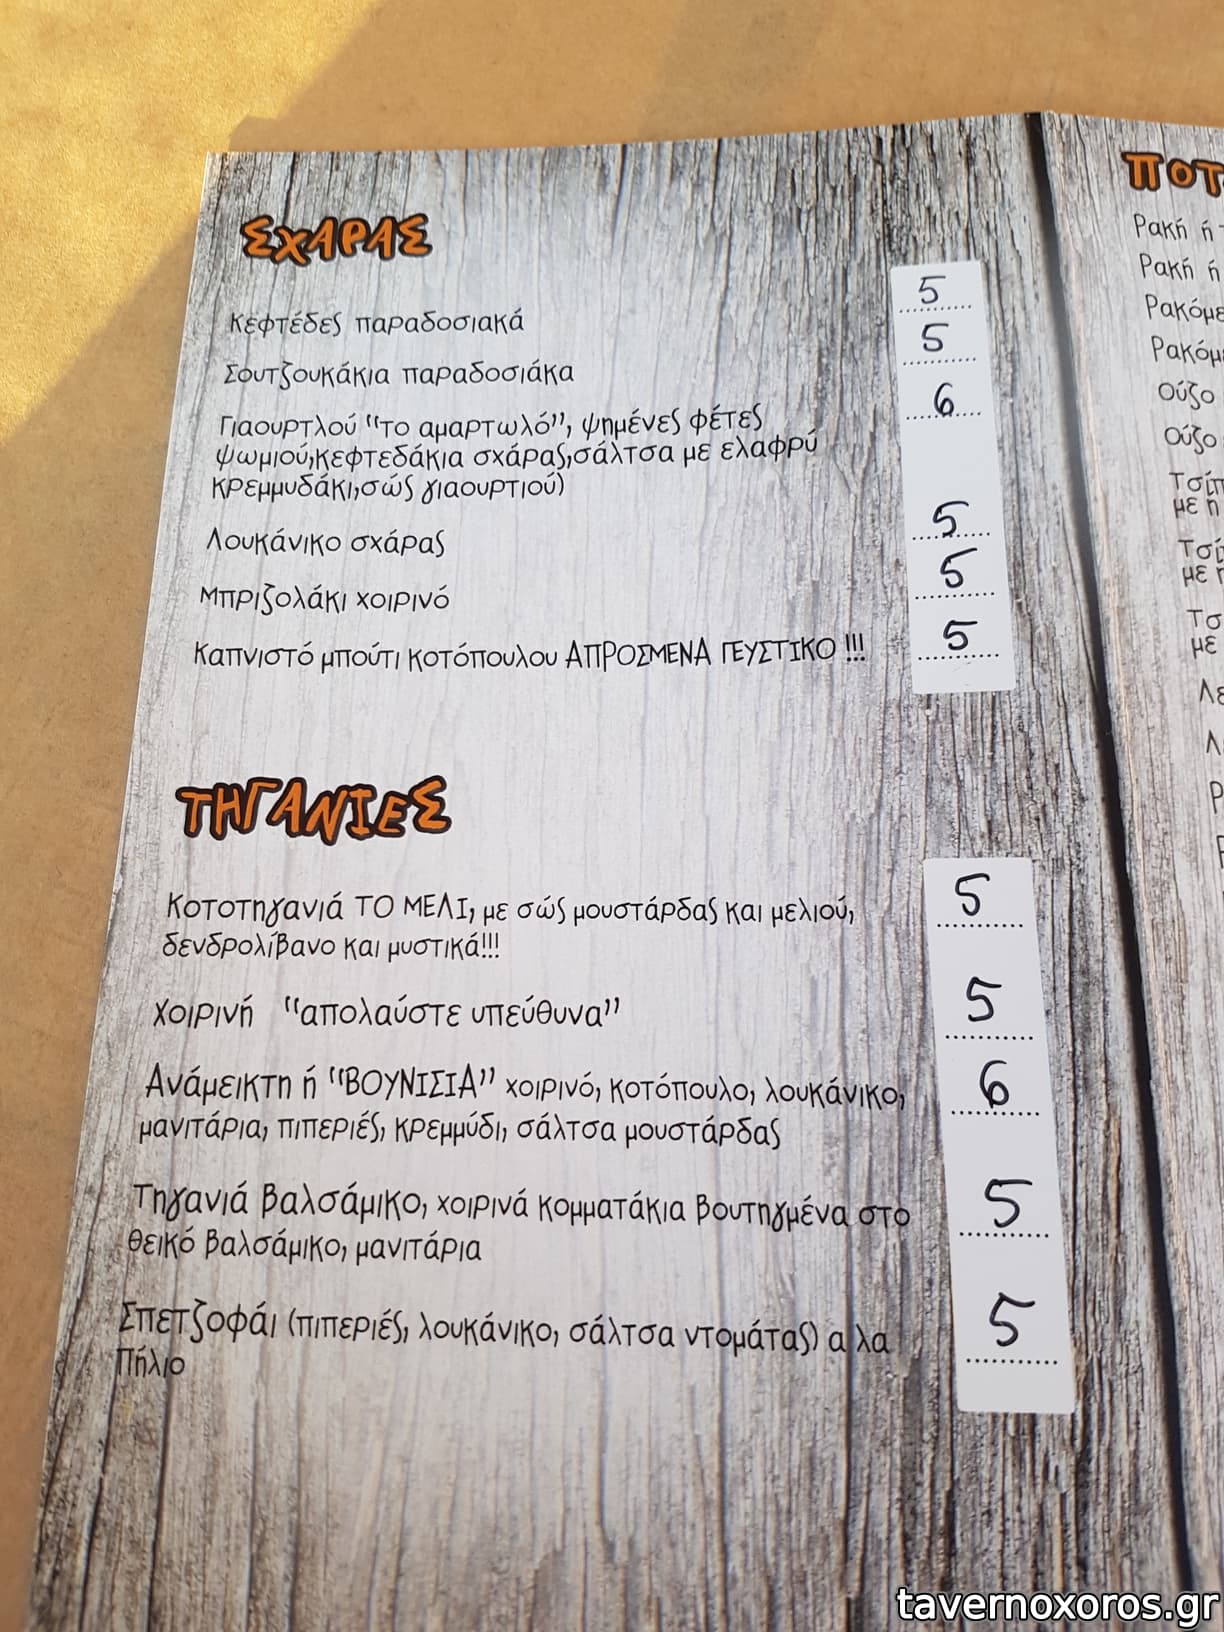 ΣΧΑΡΑΣ
Κεφτέδες παραδοσιακά 5
Σουτζουκάκια παραδοσιάκα 5
Γιαουρτλού "το αμαρτωλό", ψημένες φέτες 6
ψωμιού,κεφτεδάκια σχάρας,σάλτσα με ελαφρύ
κρεμμυδάκι,σώς γιαουρτιού)
Λουκάνικο σχάρας 5
Μπριζολάκι χοιρινό 5
Καπνιστό μπούτι κοτόπουλου ΑΠΡΟΣΜΕΝΑ ΓΕΥΣΤΙΚΟ !!! 5
ΤΗΓΑΝΙΕΣ
Κοτοτηγανιά ΤΟ ΜΕΛΙ, με σώς μουστάρδας και μελιού, 5
δενδρολίβανο και μυστικά!!!
Χοιρινή "απολαύστε υπεύθυνα" 5
Ανάμεικτη ή "ΒΟΥΝΙΣΙΑ" χοιρινό, κοτόπουλο, λουκάνικο, 6
μανιτάρια, πιπεριές, κρεμμύδι, σάλτσα μουστάρδας
Τηγανιά βαλσάμικο, χοιρινά κομματάκια βουτηγμένα στο 5
θεικό βαλσάμικο, μανιτάρια
Σπετζοφάι (πιπεριές, λουκάνικο, σάλτσα ντομάτας) α λα 5
Πήλιο
Ρακή ή
Ρακή ή
Ούζο
Ούζο
με
με
με
tavernoxoros.gr